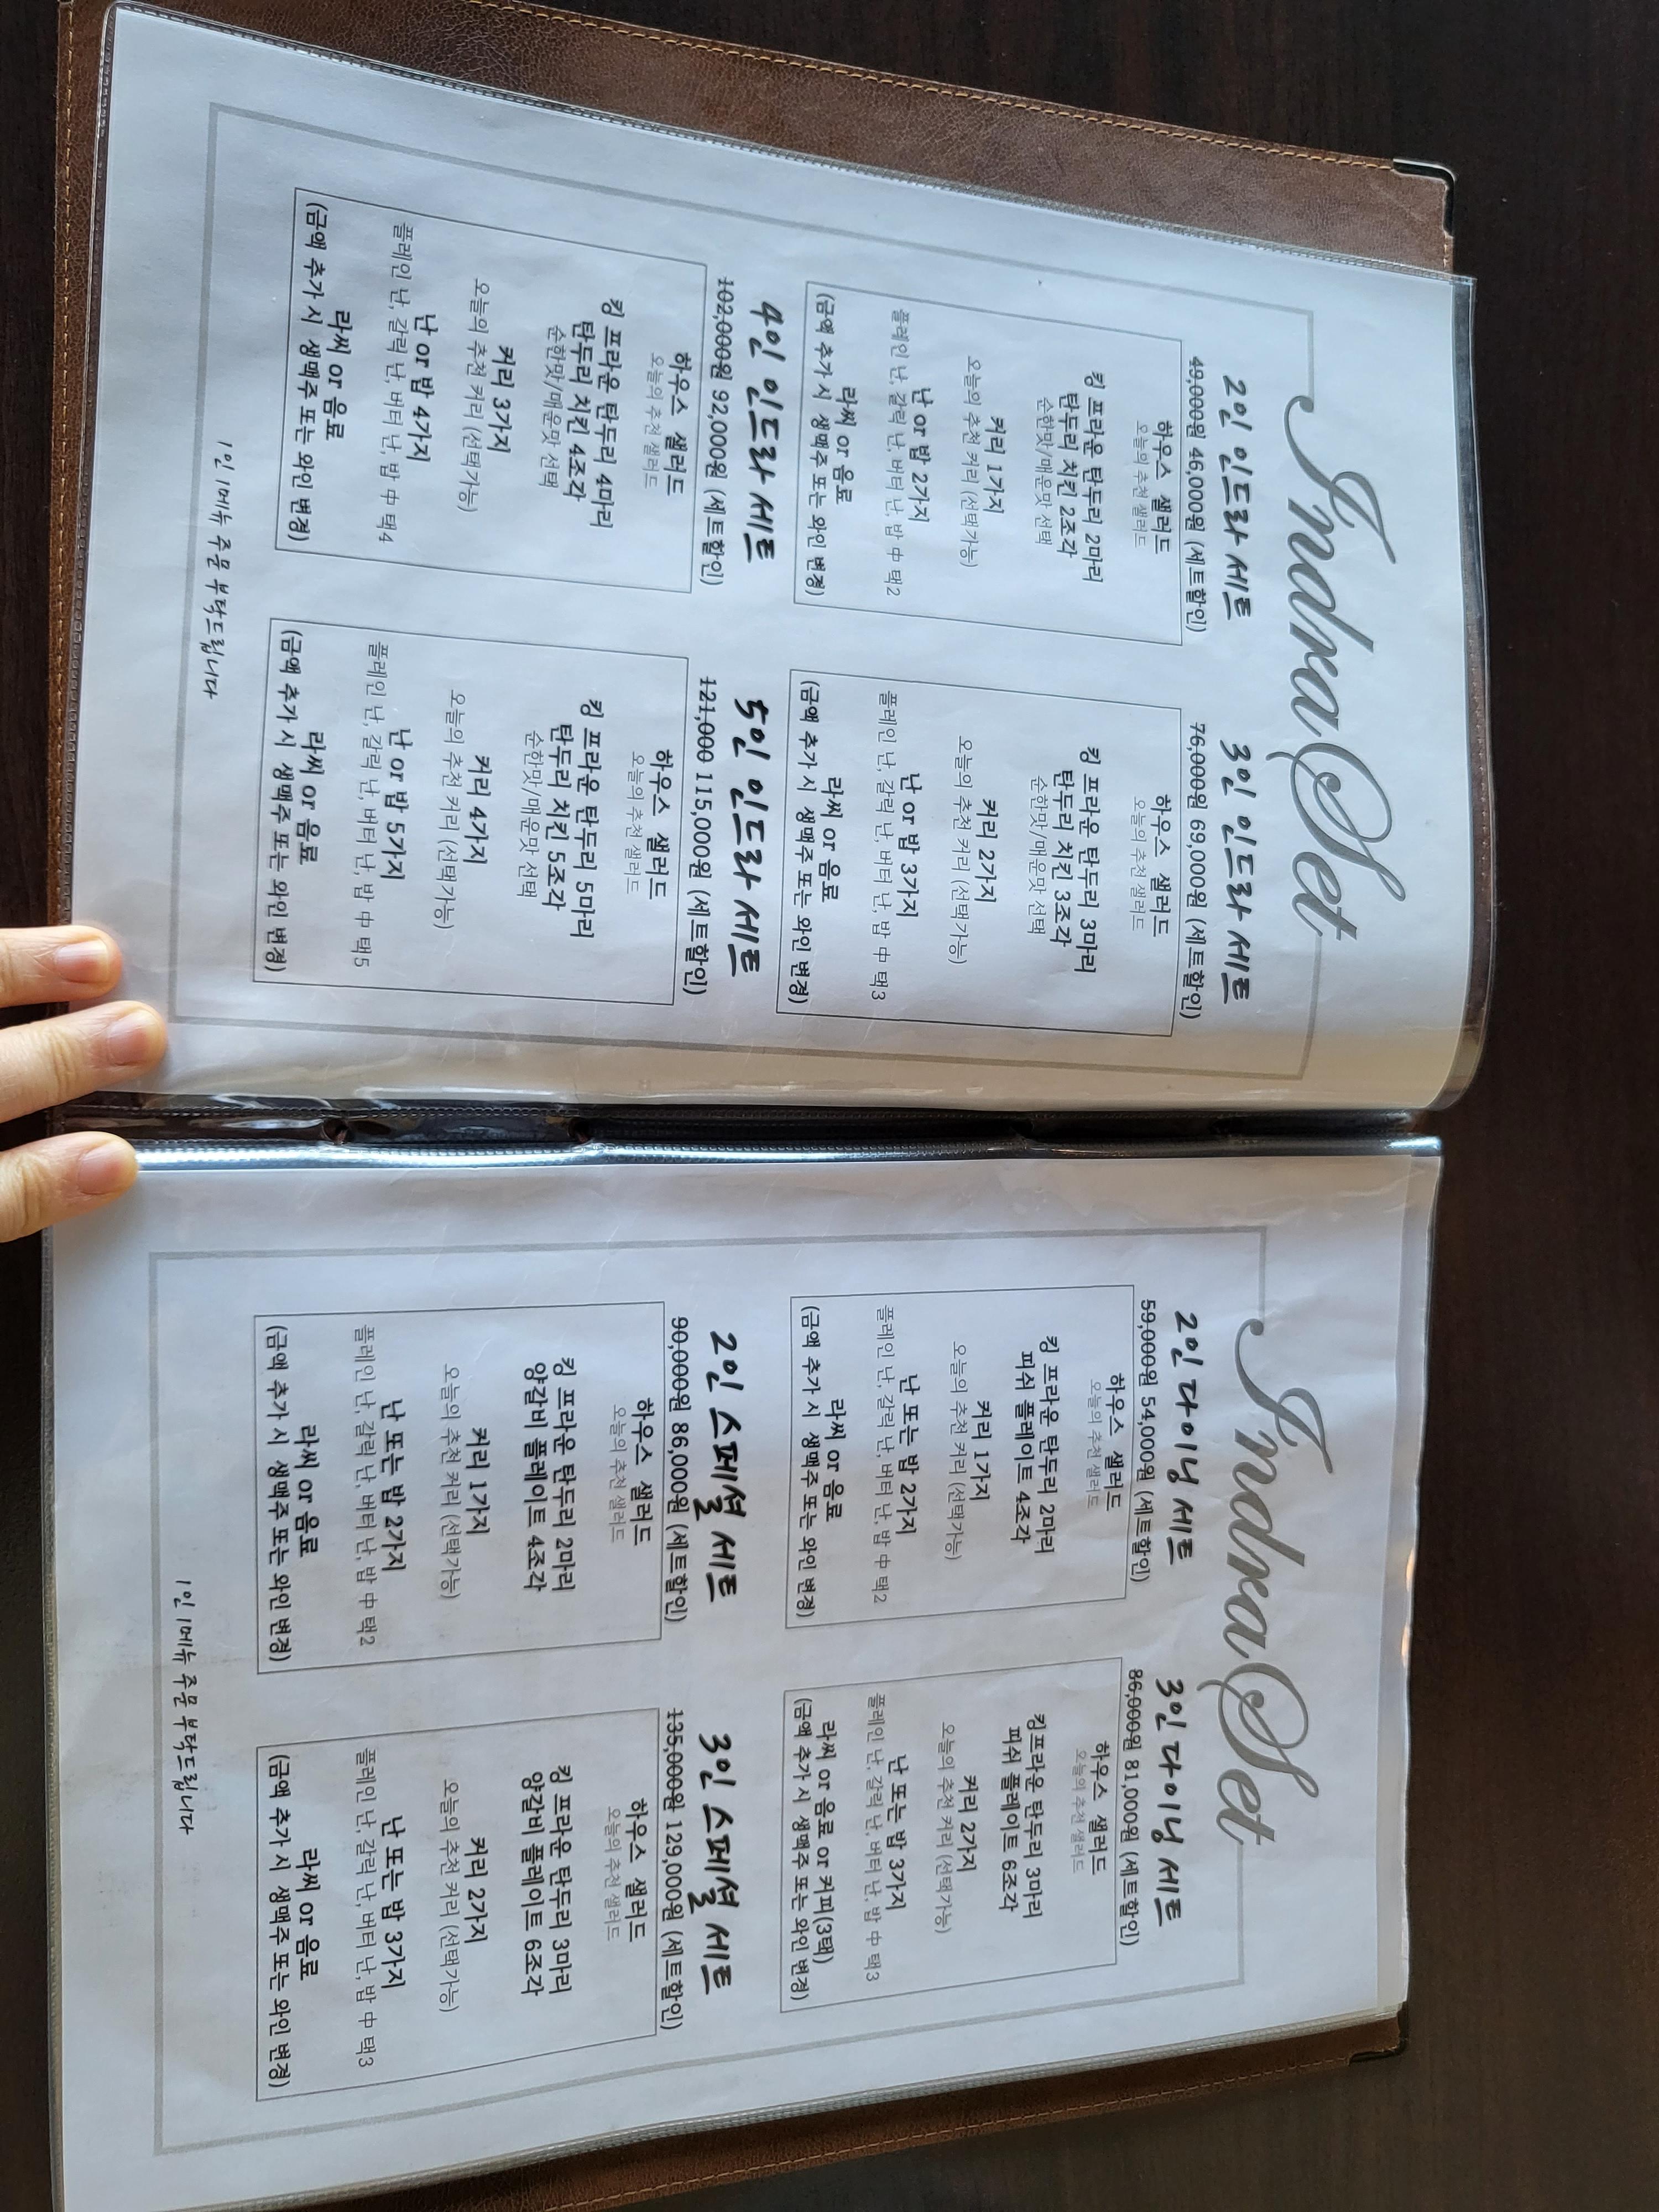 Indra Set
2인 인드라 세트
49,000원 46,000원 (세트할인)
하우스 샐러드
오늘의 추천 샐러드
킹 프라운 탄두리 2마리
탄두리 치킨 2조각
순한맛/매운맛 선택
커리 1가지
오늘의 추천 커리 (선택가능)
난 or 밥 2가지
플레인 난, 갈릭 난, 버터 난, 밥 中 택2
라씨 or 음료
(금액 추가 시 생맥주 또는 와인 변경)
3인 인드라 세트
76,000원 69,000원 (세트할인)
하우스 샐러드
오늘의 추천 샐러드
킹 프라운 탄두리 3마리
탄두리 치킨 3조각
순한맛/매운맛 선택
커리 2가지
오늘의 추천 커리 (선택가능)
난 or 밥 3가지
플레인 난, 갈릭 난, 버터 난, 밥 中 택3
라씨 or 음료
(금액 추가 시 생맥주 또는 와인 변경)
4인 인드라 세트
102,000원 92,000원 (세트할인)
하우스 샐러드
오늘의 추천 샐러드
킹 프라운 탄두리 4마리
탄두리 치킨 4조각
순한맛/매운맛 선택
커리 3가지
오늘의 추천 커리 (선택가능)
난 or 밥 4가지
플레인 난, 갈릭 난, 버터 난, 밥 中 택4
라씨 or 음료
(금액 추가 시 생맥주 또는 와인 변경)
5인 인드라 세트
121,000 115,000원 (세트할인)
하우스 샐러드
오늘의 추천 샐러드
킹 프라운 탄두리 5마리
탄두리 치킨 5조각
순한맛/매운맛 선택
커리 4가지
오늘의 추천 커리 (선택가능)
난 or 밥 5가지
플레인 난, 갈릭 난, 버터 난, 밥 中 택5
라씨 or 음료
(금액 추가 시 생맥주 또는 와인 변경)
1인 1메뉴 주문 부탁드립니다
Indra Set
2인 다이닝 세트
59,000원 54,000원 (세트할인)
하우스 샐러드
오늘의 추천 샐러드
킹 프라운 탄두리 2마리
피쉬 플레이트 4조각
커리 1가지
오늘의 추천 커리 (선택가능)
난 또는 밥 2가지
플레인 난, 갈릭 난, 버터 난, 밥 中 택2
라씨 or 음료
(금액 추가 시 생맥주 또는 와인 변경)
3인 다이닝 세트
86,000원 81,000원 (세트할인)
하우스 샐러드
오늘의 추천 샐러드
킹프라운 탄두리 3마리
피쉬 플레이트 6조각
커리 2가지
오늘의 추천 커리 (선택가능)
난 또는 밥 3가지
플레인 난, 갈릭 난, 버터 난, 밥 中 택3
라씨 or 음료 or 커피(3택)
(금액 추가 시 생맥주 또는 와인 변경)
2인 스페셜 세트
90,000원 86,000원 (세트할인)
하우스 샐러드
오늘의 추천 샐러드
킹 프라운 탄두리 2마리
양갈비 플레이트 4조각
커리 1가지
오늘의 추천 커리 (선택가능)
난 또는 밥 2가지
플레인 난, 갈릭 난, 버터 난, 밥 中 택2
라씨 or 음료
(금액 추가 시 생맥주 또는 와인 변경)
3인 스페셜 세트
135,000원 129,000원 (세트할인)
하우스 샐러드
오늘의 추천 샐러드
킹 프라운 탄두리 3마리
양갈비 플레이트 6조각
커리 2가지
오늘의 추천 커리 (선택가능)
난 또는 밥 3가지
플레인 난, 갈릭 난, 버터 난, 밥 中 택3
라씨 or 음료
(금액 추가 시 생맥주 또는 와인 변경)
1인 1메뉴 주문 부탁드립니다